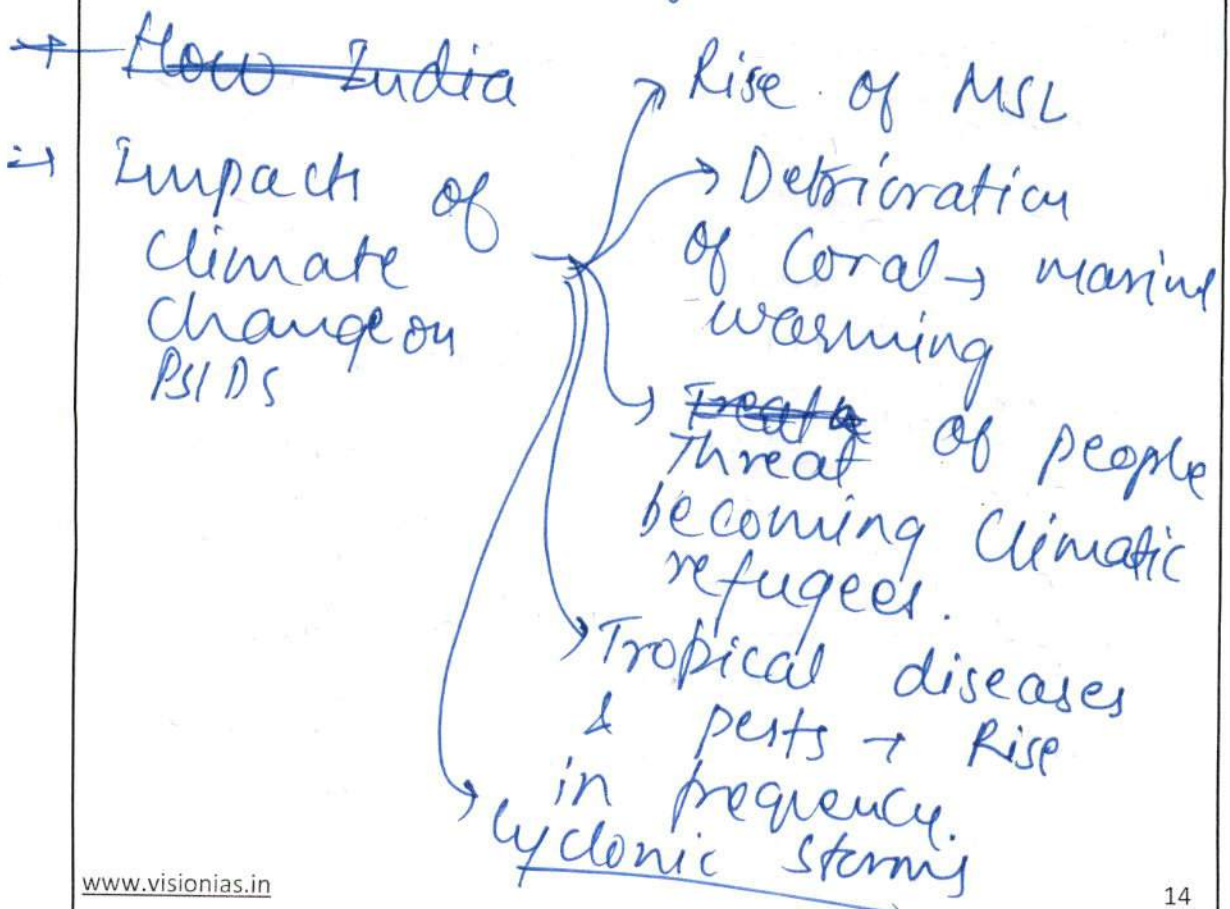 How India
→ Impach of
Climate
Change on
PSIDS
→ Rise of MSL
→ Detrioration
of Coral → marine
warming
Threat of people
becoming Climatic
refugees.
Tropical diseases
& pests → Rise
in frequency.
Cyclonic Storms
www.visionias.in
14